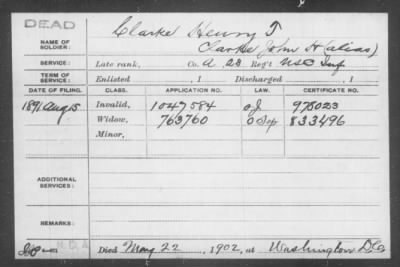 DEAD
Clarke Henry T
NAME OF SOLDIER:
Clarke John H (alias)
SERVICE: Late rank, Co. A 23 Reg't USC Inf
TERM OF SERVICE: Enlisted , 1 Discharged , 1
DATE OF FILING. CLASS. APPLICATION NO. LAW. CERTIFICATE NO.
1891 Aug 5 Invalid, 1047584 975023
Widow, 763760 833496
Minor,
ADDITIONAL SERVICES:
REMARKS:
Died May 22, 1902, at Washington DC